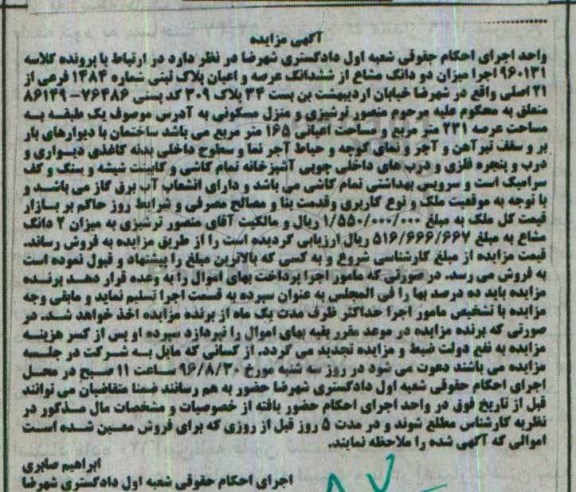 آگهی مزایده
واحد اجرای احکام حقوقی شعبه اول دادگستری شهرضا در نظر دارد در ارتباط با پرونده کلاسه
۹۶۰۱۳۱ اجرا میزان دو دانگ مشاع از ششدانگ عرصه و اعیان پلاک ثبتی شماره ۱۴۸۴ فرعی از
۲۱ اصلی واقع در شهرضا خیابان اردیبهشت بن بست ۳۴ پلاک ۳۰۹ کد پستی ۷۶۴۸۶-۸۶۱۴۹
متعلق به محکوم علیه مرحوم منصور ترشیزی و منزل مسکونی به آدرس موصوف یک طبقه به
مساحت عرصه ۲۳۱ متر مربع و مساحت اعیانی ۱۶۵ متر مربع می باشد ساختمان با دیوارهای بار
بر و سقف تیرآهن و آجر و نمای کوچه و حیاط آجر نما و سطوح داخلی بدنه کاغذی دیواری و
درب و پنجره فلزی و درب های داخلی چوبی آشپزخانه تمام کاشی و کابینت شیشه و سنگ و کف
سرامیک است و سرویس بهداشتی تمام کاشی می باشد و دارای انشعاب آب برق گاز می باشد و
با توجه به موقعیت ملک و نوع کاربری و قدمت بنا و مصالح مصرفی و شرایط روز حاکم بر بازار
قیمت کل ملک به مبلغ ۱/۵۵۰/۰۰۰/۰۰۰ ریال و مالکیت آقای منصور ترشیزی به میزان ۲ دانگ
مشاع به مبلغ ۵۱۶/۶۶۶/۶۶۷ ریال ارزیابی گردیده است را از طریق مزایده به فروش رساند.
قیمت مزایده از مبلغ کارشناسی شروع و به کسی که بالاترین مبلغ را پیشنهاد و قبول نموده است
به فروش می رسد. در صورتی که مامور اجرا پرداخت بهای اموال را به وعده قرار دهد برنده
مزایده باید ده درصد بها را فی المجلس به عنوان سپرده به قسمت اجرا تسلیم نماید و مابقی وجه
مزایده با تشخیص مامور اجرا حداکثر ظرف مدت یک ماه از برنده مزایده اخذ خواهد شد. در
صورتی که برنده مزایده در موعد مقرر بقیه بهای اموال را نپردازد سپرده او پس از کسر هزینه
مزایده به نفع دولت ضبط و مزایده تجدید می گردد. از کسانی که مایل به شرکت در جلسه
مزایده می باشند دعوت می شود در روز سه شنبه مورخ ۹۶/۸/۳۰ ساعت ۱۱ صبح در محل
اجرای احکام حقوقی شعبه اول دادگستری شهرضا حضور به هم رسانند ضمنا متقاضیان می توانند
قبل از تاریخ فوق در واحد اجرای احکام حضور یافته از خصوصیات و مشخصات مال مذکور در
نظریه کارشناس مطلع شوند و در مدت ۵ روز قبل از روزی که برای فروش معین شده است
اموالی که آگهی شده را ملاحظه نمایند.
ابراهیم صابری
اجرای احکام حقوقی شعبه اول دادگستری شهرضا